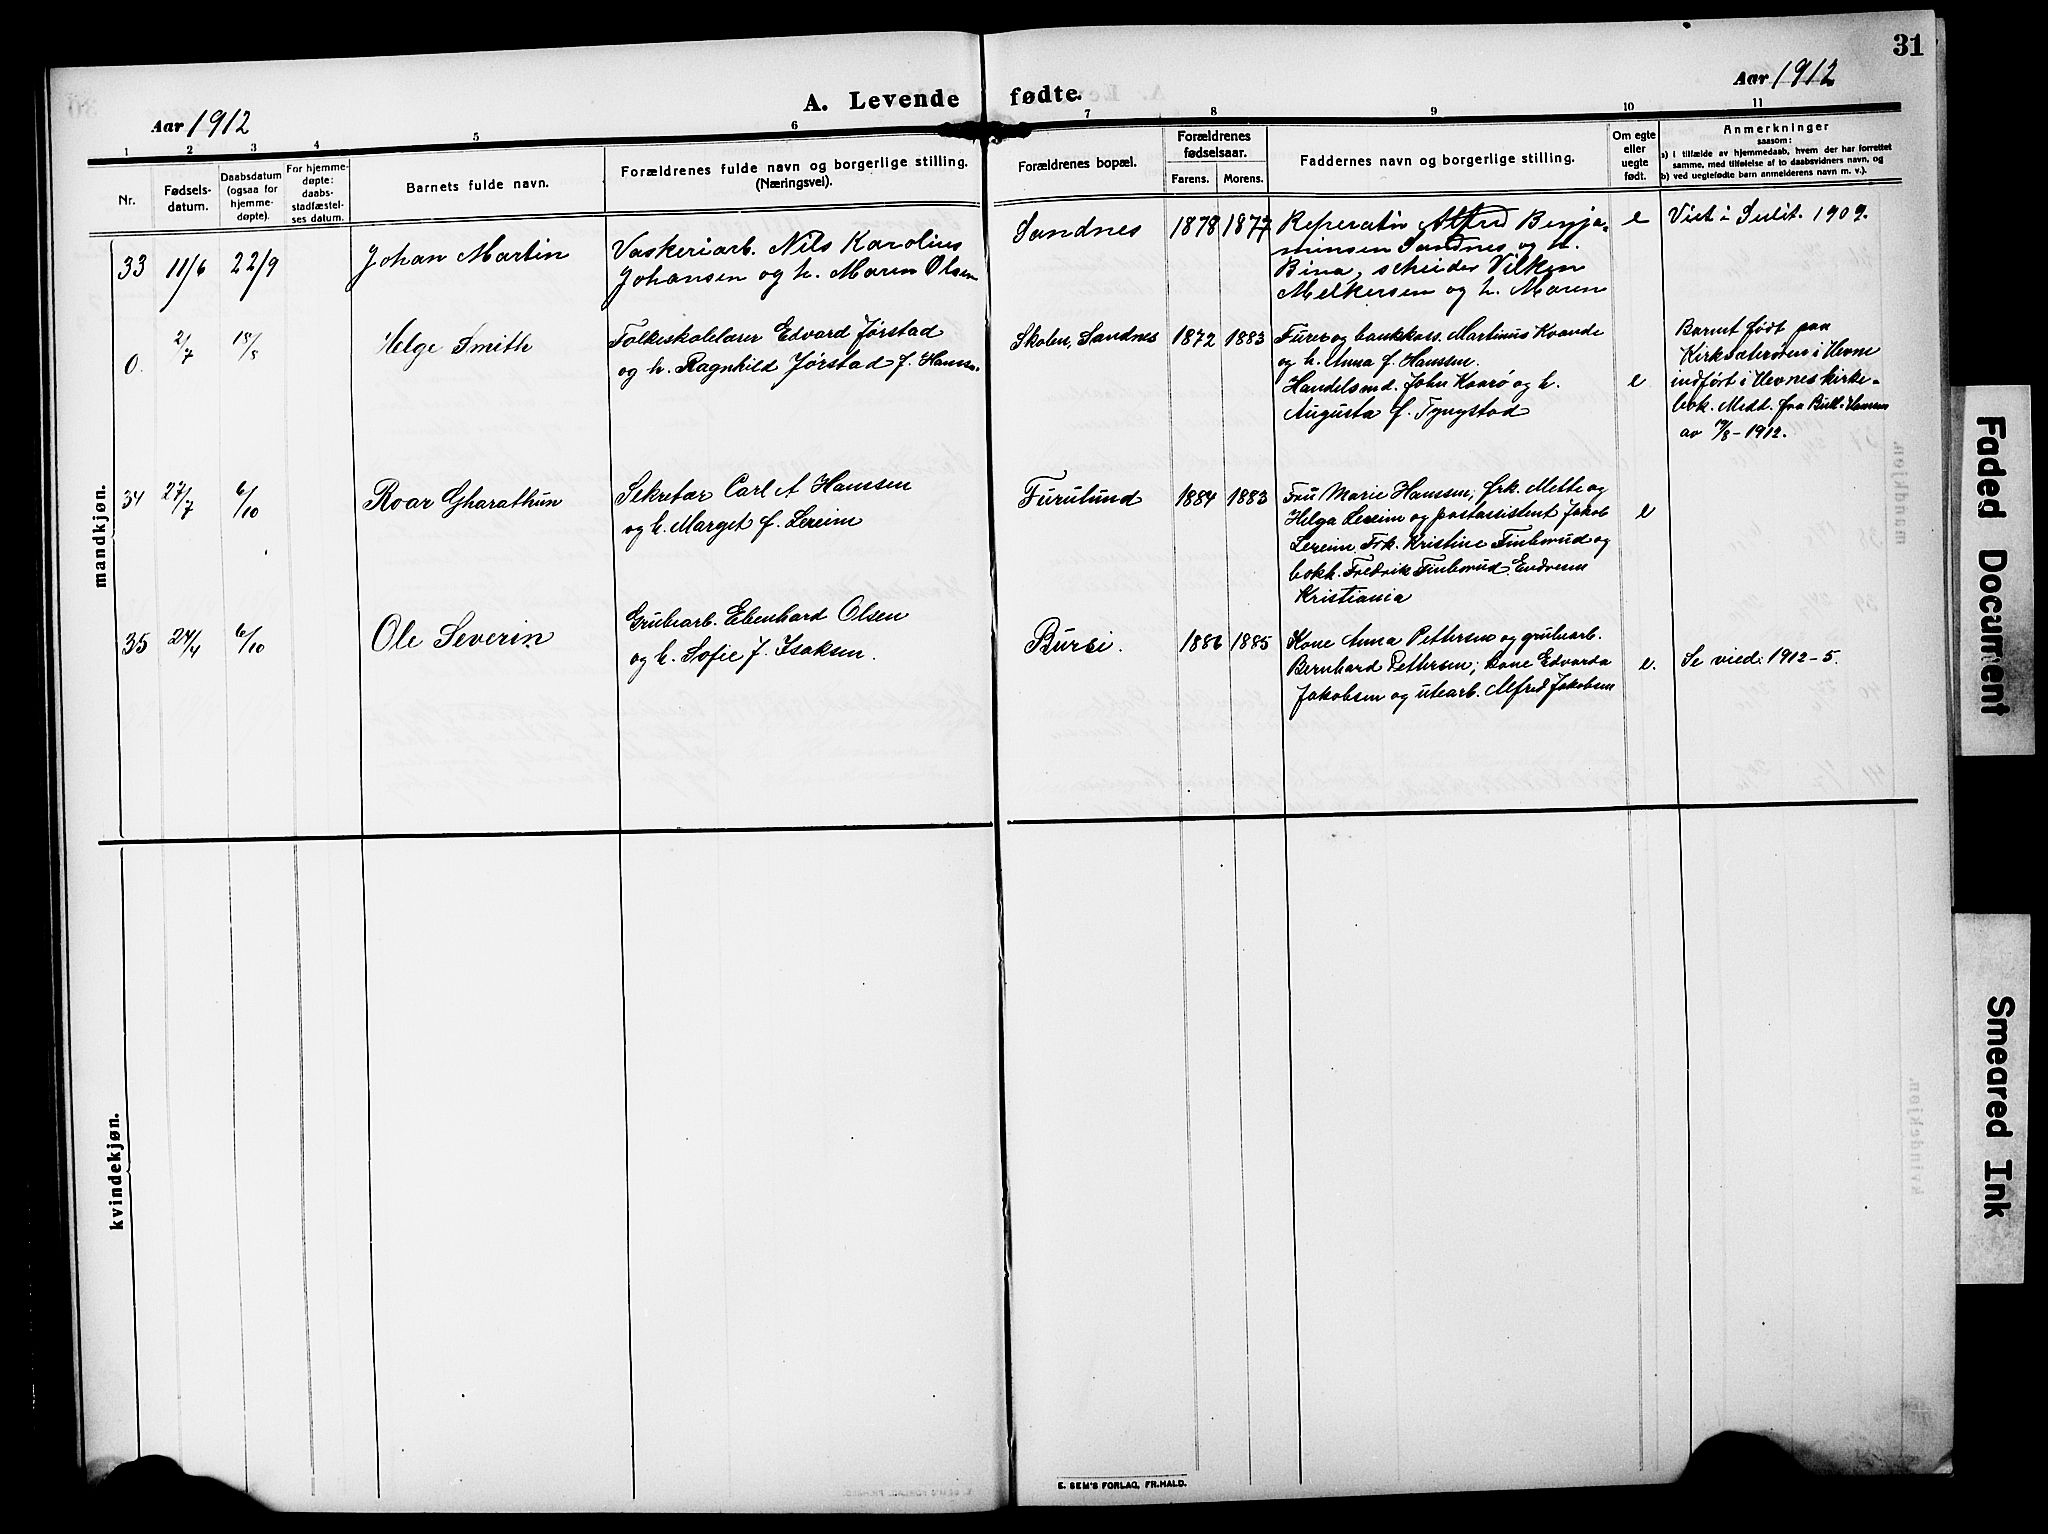 31
Aar 1912
A. Levende fødte.
Aar 1912
1 2 3 4 5 6 7 8 9 10 11
Nr.
Fødsels-
datum.
Daabsdatum
(ogsaa for
hjemme-
døpte).
For hjemme-
døpte:
daabs-
stadfæstel-
ses datum.
Barnets fulde navn.
Forældrenes fulde navn og borgerlige stilling.
(Næringsvei).
Forældrenes bopæl.
Forældrenes
fødselsaar.
Farens. Morens.
Faddernes navn og borgerlige stilling.
Om egte
eller
uegte
født.
Anmerkninger
saasom:
a) i tilfælde av hjemmedaab, hvem der har forrettet
samme, med tilføielse af to daabsvidners navn, og
b) ved uegtefødte børn anmelderens navn m. v.).
mandkjøn.
33 11/6 22/9 Johan Martin
Vaskeriarb. Nils Karolius
Johansen og h. Maren Olsen
Sandnes 1878 1877
Reperatør Alfred Benja-
minsen Sandnes og h.
Bina, scheider Vilken
Melkersen og h. Maren
e
Viet i Sulit. 1909.
0. 2/7 18/8 Helge Smith
Folkeskolelærer Edvard Jørstad
og h. Ragnhild Jørstad f. Hansen.
Skolen, Sandnes 1872 1883
Furer og bankkass. Martinus Kvande
og h. Anna f. Hanssen.
Handelsmd. John Kvarø og h.
Augusta f. Tyngstad
e
Barnet født paa
Kirksæterøren i Hevne
indført i Hevnes kirke-
bok. Medd. fra Bull-Hansen
av 19/8-1912.
34 27/7 6/10 Roar Gharathun
Sekretær Carl A Hanssen
og h. Marget f. Lereim
Furulund 1884 1883
Fru Marie Hanssen, frk. Mette og
Helga Lereim og postassistent Jakob
Lereim. Frk. Kristine Finborud og
bokh. Fredrik Finborud
Kristiania
e
35 24/4 6/10 Ole Severin
Grubearb. Ebenhard Olsen
og h. Sofie f. Isaksen.
Bursi. 1886 1885
Kone Anna Pettersen og grubearb.
Bernhard Pettersen; kone Edvarda
Jakobsen og utearb. Alfred Jakobsen
e.
Se vied: 1912-5.
kvindekjøn.
E. SEM'S FORLAG, FR.HALD.
Faded Document
Smeared Ink